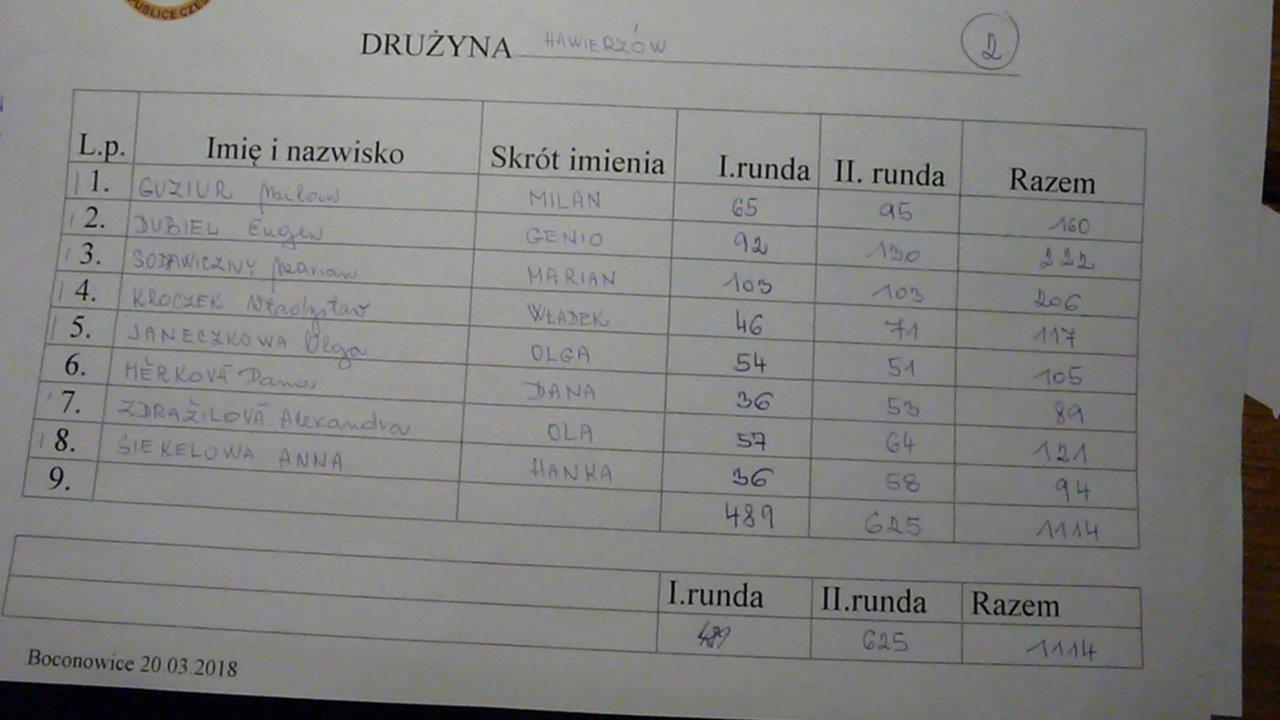 PUBLICE CZE
DRUŻYNA HAWIERZÓW 2
L.p. Imię i nazwisko Skrót imienia I.runda II. runda Razem
1. GUZIUR Milan MILAN 65 95 160
2. DUBIEL Eugen GENIO 92 130 222
3. SODAWICZNY Marian MARIAN 103 103 206
4. KROCZEK Władysław WŁADEK 46 71 117
5. JANECZKOWA Olga OLGA 54 51 105
6. MĚRKOVÁ Dana DANA 36 53 89
7. ZDRAŽILOVÁ Alexandra OLA 57 64 121
8. SIEKELOWA ANNA HANKA 36 58 94
9. 489 625 1114
I.runda II.runda Razem
489 625 1114
Boconowice 20.03.2018